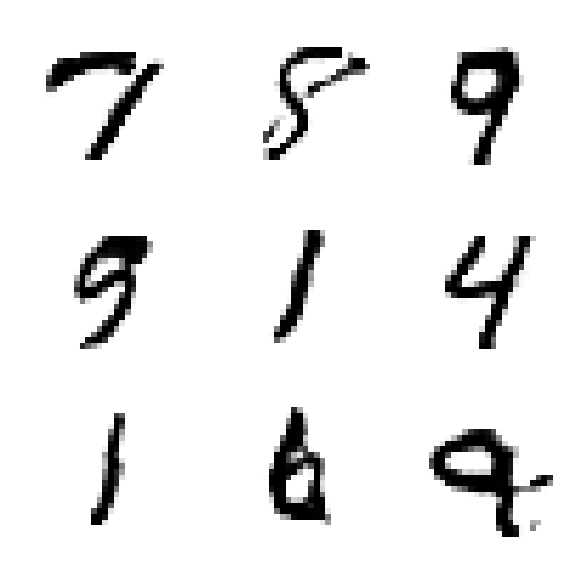 7 8 9
9 1 4
1 6 9